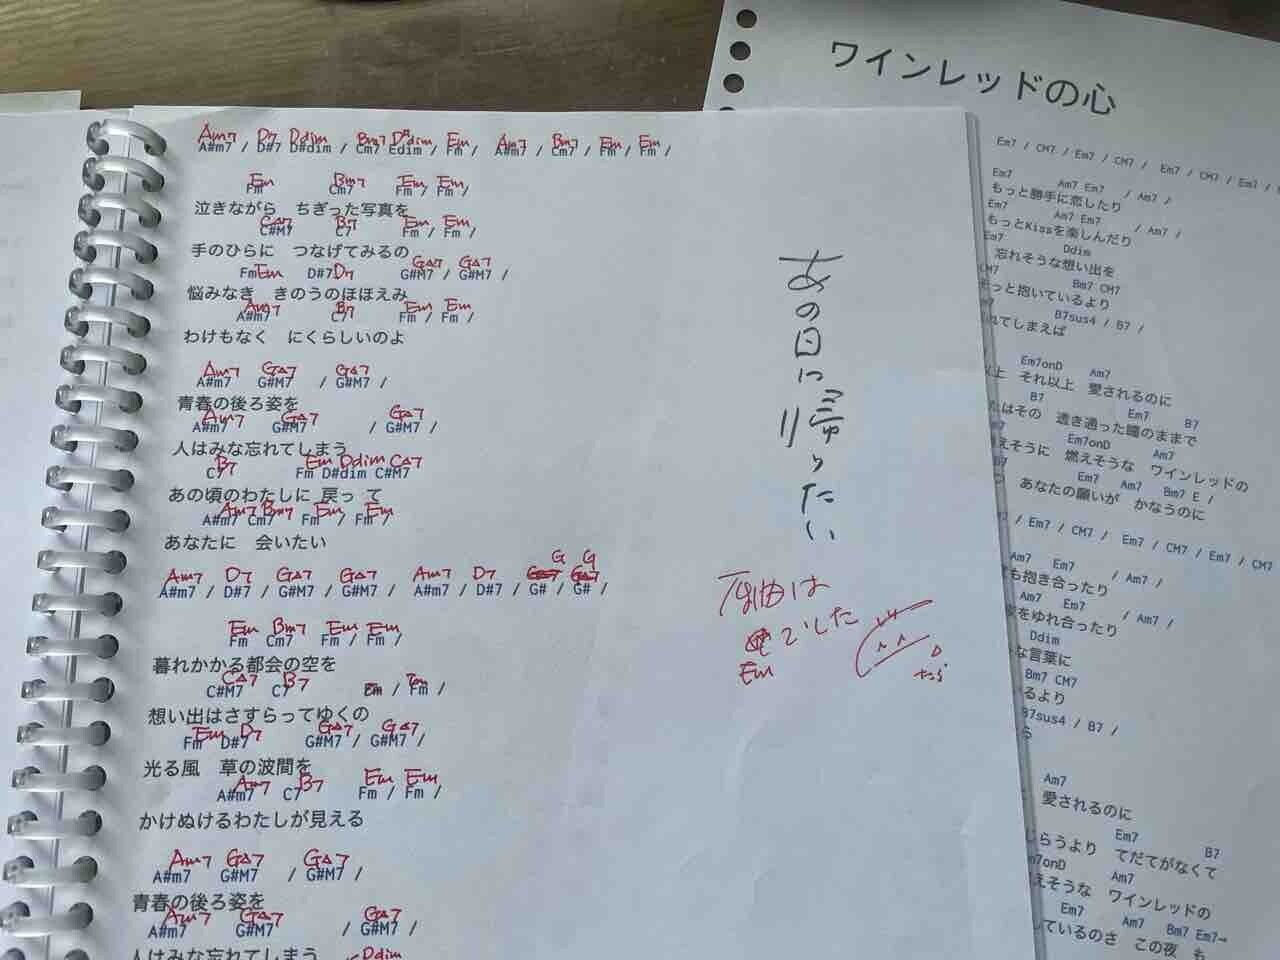 Am7 D7 Ddim Bm7 D#dim Em Am7 Bm7 Em Em
A#m7 / D#7 D#dim / Cm7 Edim / Fm / A#m7 / Cm7 / Fm / Fm /
Em Bm7 Em Em
Fm Cm7 Fm / Fm /
泣きながら ちぎった写真を
C△7 B7 Em Em
C#M7 C7 Fm / Fm /
手のひらに つなげてみるの
Em D7 G△7 G△7
Fm D#7 G#M7 / G#M7 /
悩みなき きのうのほほえみ
Am7 B7 Em Em
A#m7 C7 Fm / Fm /
わけもなく にくらしいのよ
Am7 G△7 G△7
A#m7 G#M7 / G#M7 /
青春の後ろ姿を
Am7 G△7 G△7
A#m7 G#M7 / G#M7 /
人はみな忘れてしまう
B7 Em Ddim C△7
C7 Fm D#dim C#M7
あの頃のわたしに 戻っ て
Am7 Bm7 Em Em
A#m7 Cm7 Fm / Fm /
あなたに 会いたい
G G
Am7 D7 G△7 G△7 Am7 D7
A#m7 / D#7 / G#M7 / G#M7 / A#m7 / D#7 / G# / G# /
Em Bm7 Em Em
Fm Cm7 Fm / Fm /
暮れかかる都会の空を
C△7 B7
C#M7 C7 / Fm /
想い出はさすらってゆくの
Em D7 G△7 G△7
Fm D#7 G#M7 / G#M7 /
光る風 草の波間を
Am7 B7 Em Em
A#m7 C7 Fm / Fm /
かけぬけるわたしが見える
Am7 G△7 G△7
A#m7 G#M7 / G#M7 /
青春の後ろ姿を
Am7 G△7 G△7
A#m7 G#M7 / G#M7 /
人はみな忘れてしまう
Ddim
あの日に帰りたい
原曲は
でした
Em
ワインレッドの心
Em7 / CM7 / Em7 / CM7 / Em7 / CM7 / Em7 /
Em7 Am7 Em7 / Am7 /
もっと勝手に恋したり
Em7 Am7 Em7 / Am7 /
もっとKissを楽しんだり
Em7 Ddim
忘れそうな想い出を
CM7 Bm7 CM7
そっと抱いているより
B7sus4 / B7 /
れてしまえば
Em7onD Am7
以上 それ以上 愛されるのに
B7 Em7 B7
たはその 透き通った瞳のままで
Em7onD Am7
えそうに 燃えそうな ワインレッドの
Em7 Am7 Bm7 E /
あなたの願いが かなうのに
/ Em7 / CM7 / Em7 / CM7 / Em7 / CM7
Am7 Em7 / Am7 /
も抱き合ったり
Am7 Em7 / Am7 /
をゆれ合ったり
Ddim
な言葉に
Bm7 CM7
るより
B7sus4 / B7 /
ら
Am7
愛されるのに
Em7 B7
じらうより てだてがなくて
m7onD Am7
えそうな ワインレッドの
Em7 Am7 Bm7 Em7→
しているのさ この夜 も